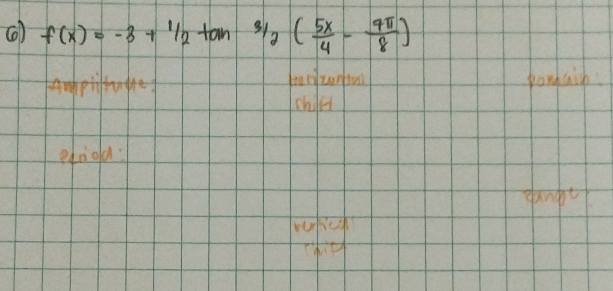 6) f(x) = -3 + 1/2 tan 3/2 ( 5x/4 - 9π/8 )
Amplitude:
Horizontal
shift
Domain:
Period:
Range
vertical
shift